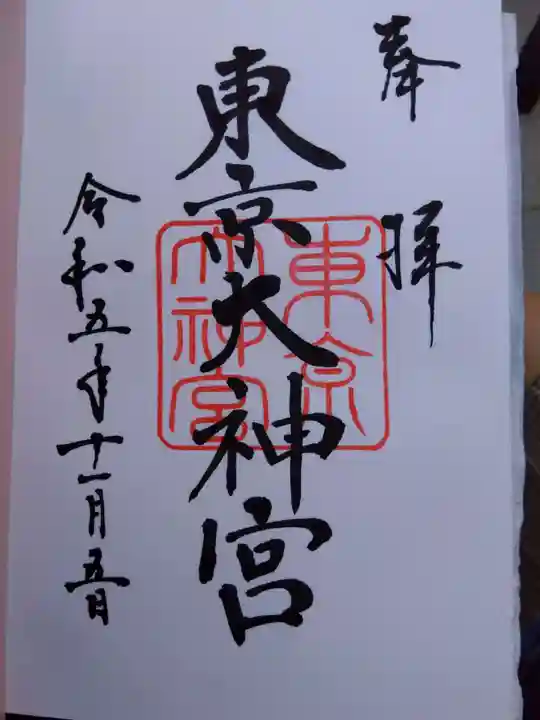 奉拝
東京大神宮
東京
大神宮
令和五年十一月五日